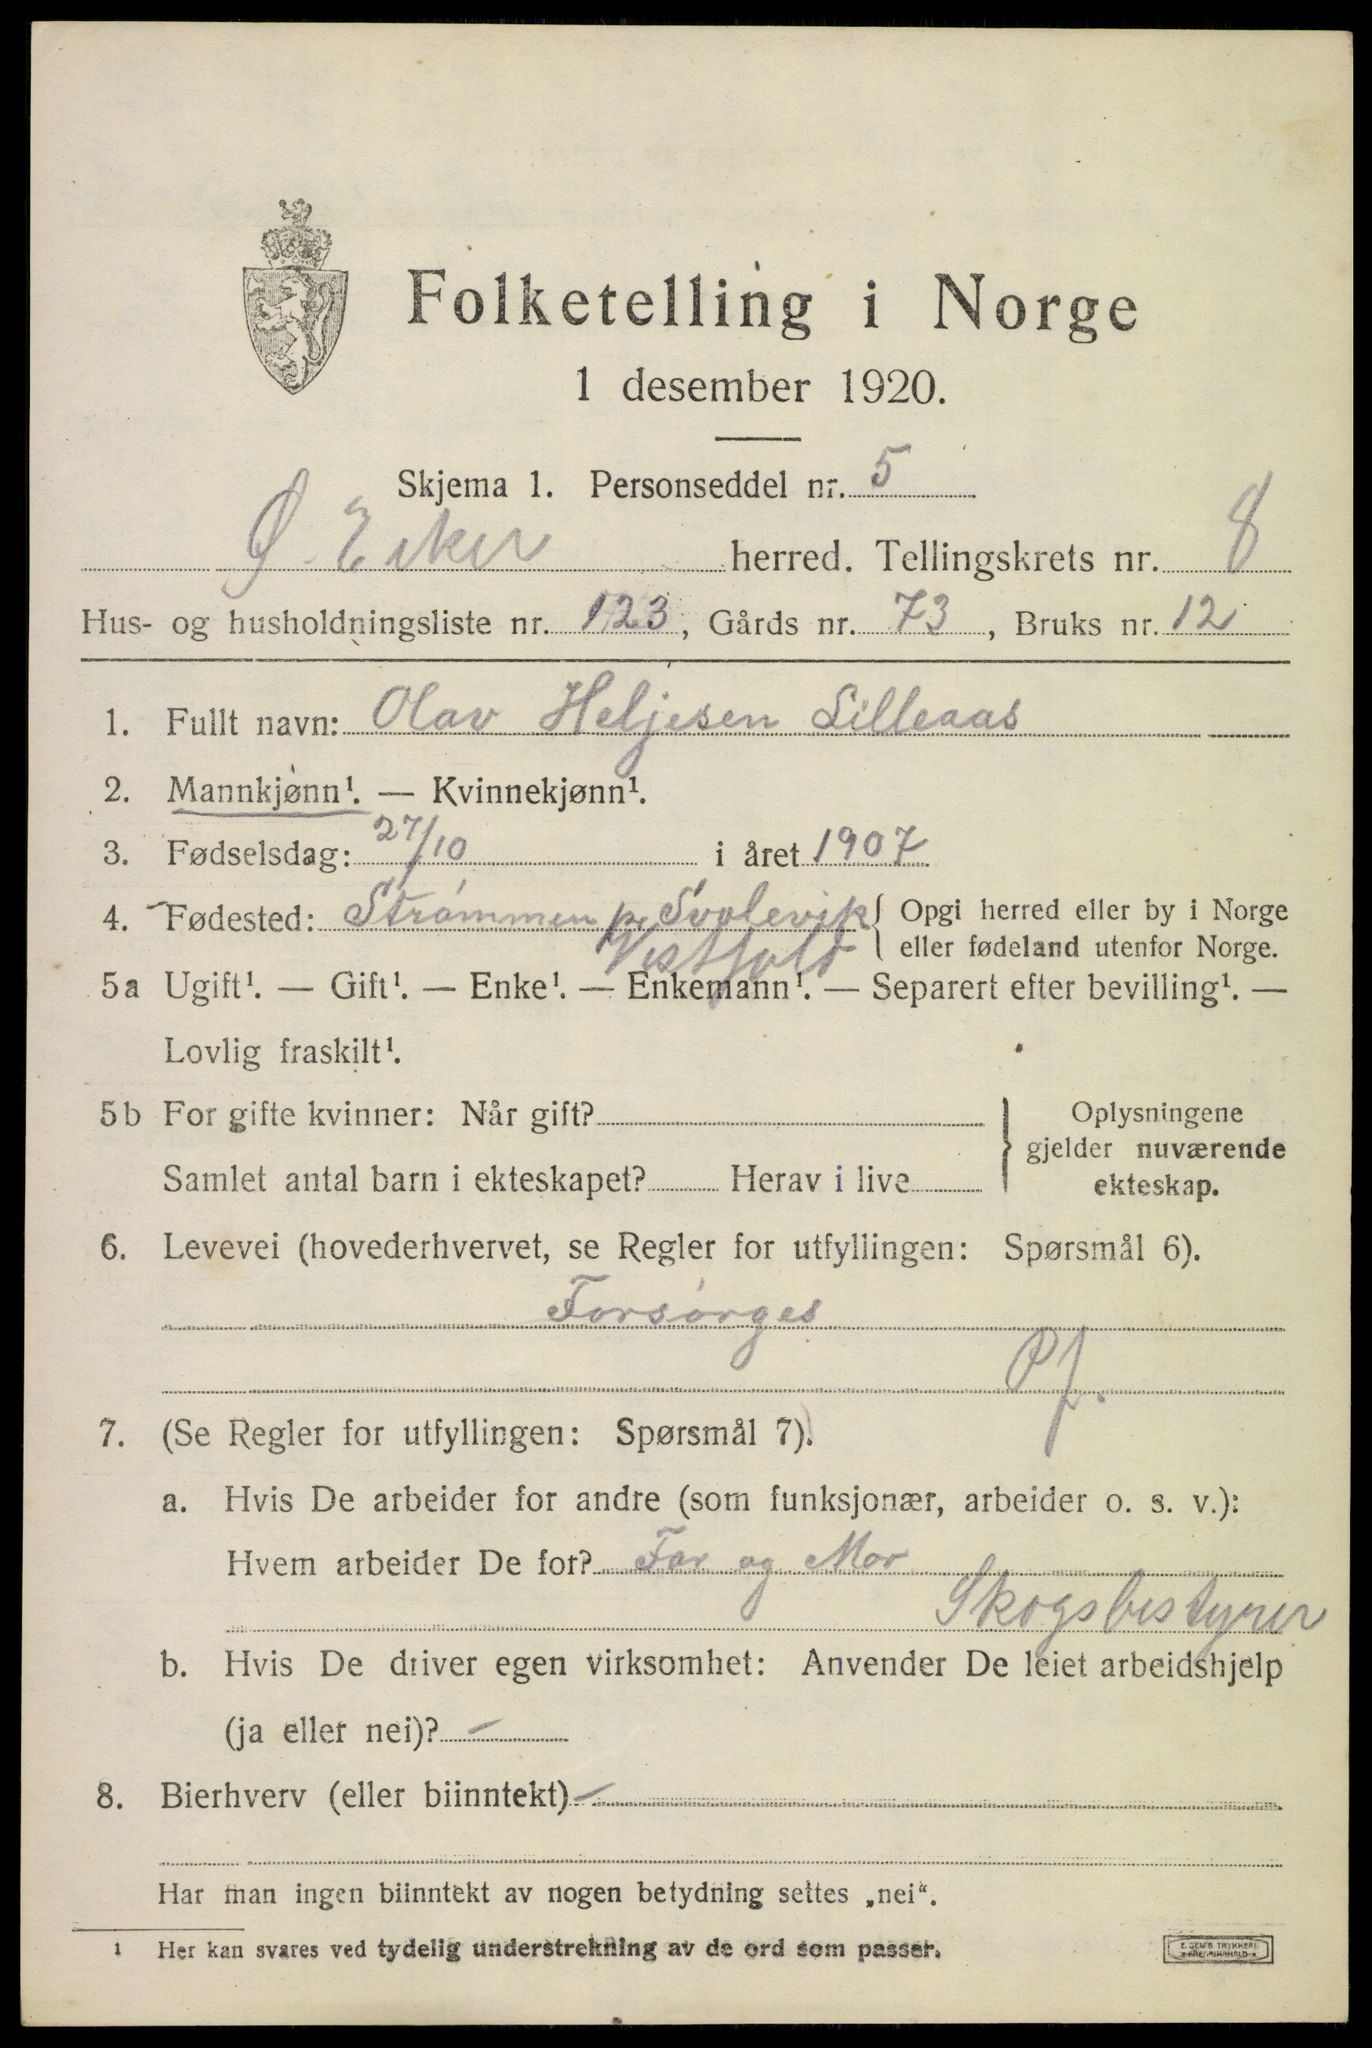 Folketelling i Norge
1 desember 1920.
Skjema 1. Personseddel nr. 5
Ø. Eiker herred. Tellingskrets nr. 8
Hus- og husholdningsliste nr. 123, Gårds nr. 73, Bruks nr. 12
1. Fullt navn: Olav Heljesen Lilleaas
2. Mannkjønn¹. — Kvinnekjønn¹.
3. Fødselsdag: 27/10 i året 1907
4. Fødested: Strømmen pr Svelevik { Opgi herred eller by i Norge
Vestfold eller fødeland utenfor Norge.
5a Ugift¹. — Gift¹. — Enke¹. — Enkemann¹. — Separert efter bevilling¹. —
Lovlig fraskilt¹.
5b For gifte kvinner: Når gift? } Oplysningene
gjelder nuværende
Samlet antal barn i ekteskapet? Herav i live ekteskap.
6. Levevei (hovederhvervet, se Regler for utfyllingen: Spørsmål 6).
Forsørges
Pf.
7. (Se Regler for utfyllingen: Spørsmål 7).
a. Hvis De arbeider for andre (som funksjonær, arbeider o. s. v.):
Hvem arbeider De for? Far og Mor
Skogsbestyrer
b. Hvis De driver egen virksomhet: Anvender De leiet arbeidshjelp
(ja eller nei)? —
8. Bierhverv (eller biinntekt) —
Har man ingen biinntekt av nogen betydning settes „nei“.
1 Her kan svares ved tydelig understrekning av de ord som passer.
E. SEM'S TRYKKERI
FREDRIKSHALD